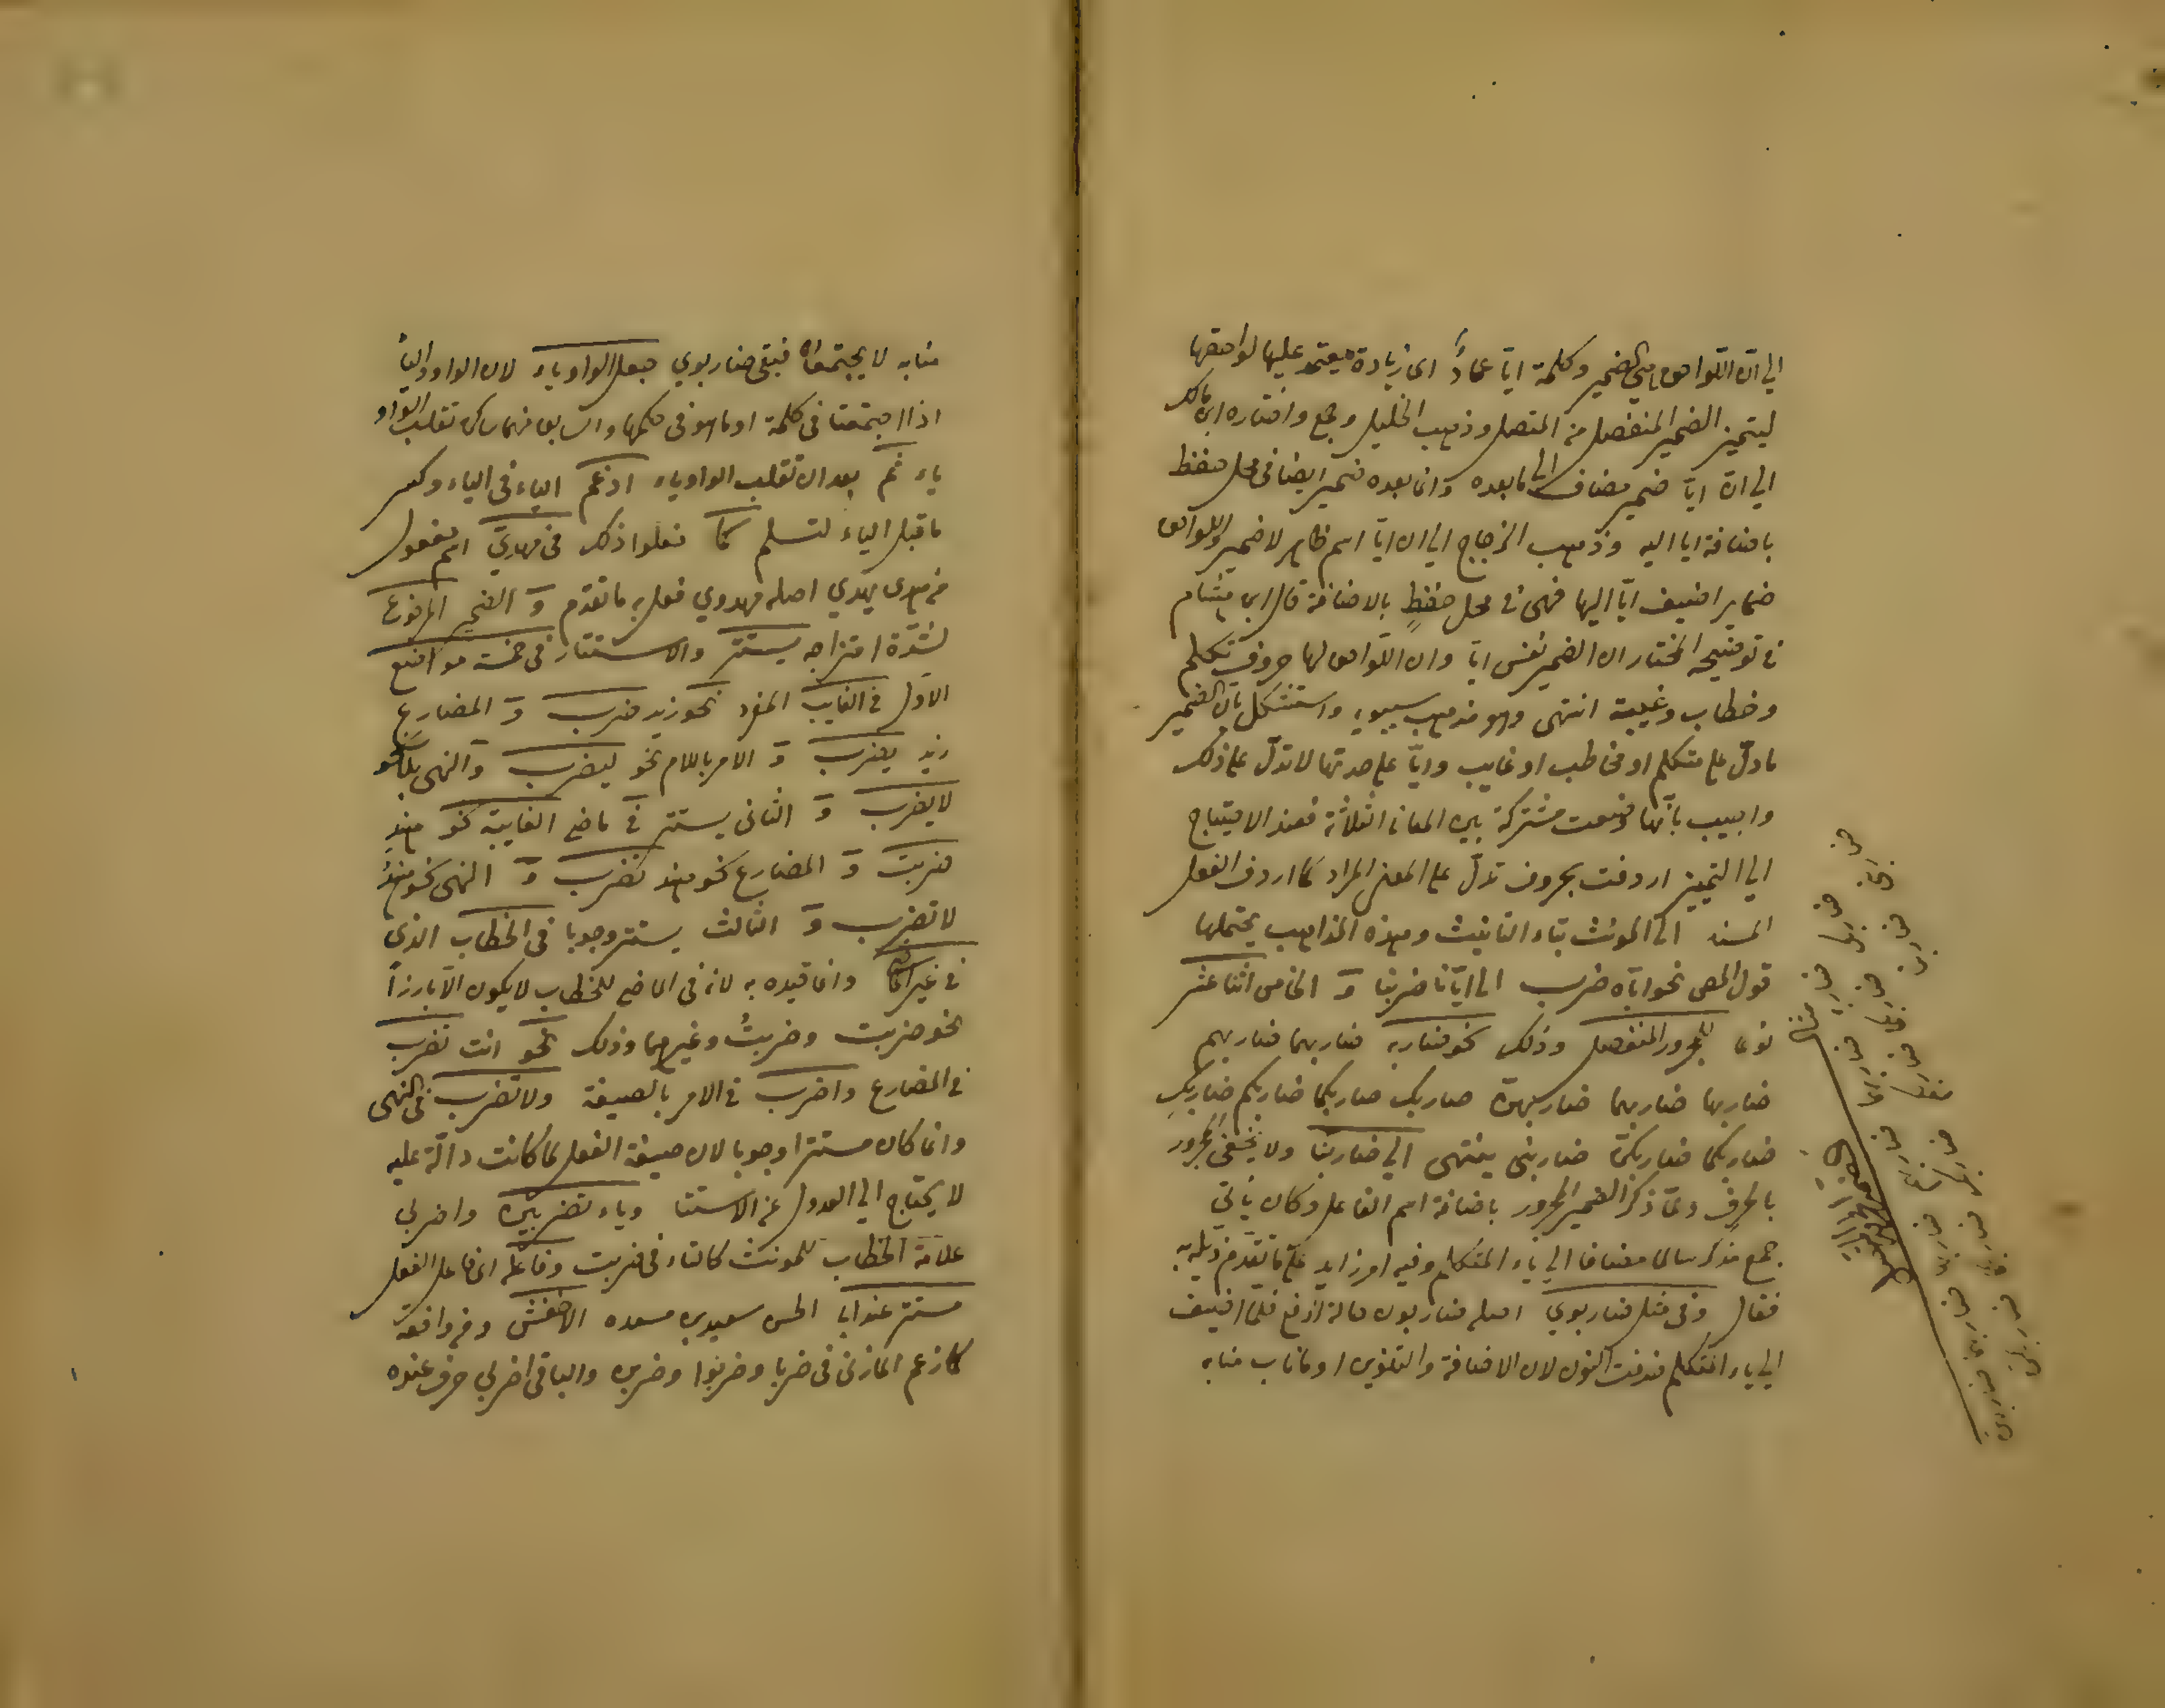 الي ان اللواحق هي الضمير وكلمة ايّا عمادٌ اى زيادة يعتمد عليها لواحقها
ليتميز الضمير المنفصل من المتصل وذهب الخليل وجمع واختاره ابن مالك
الي ان ايّا ضمير مضاف الى ما بعده وان ما بعده ضمير ايضا في محل خفظ
باضافة ايا اليه وذهب الزجاج الي ان ايّا اسم ظاهر لا ضمير واللواحق
ضماير اضيف ايّا اليها فهى في محل خفظٍ بالاضافة قال ابن هشام
في توضيحه المختار ان الضمير نفس ايّا وان اللواحق لها حروف تكلم
وخطاب وغيبة انتهى وهو مذهب سيبويه واستشكل بان الضمير
ما دلّ على متكلم او مخاطب او غايب وايّا على حدتها لا تدلّ على ذلك
واجيب بانّها وضعت مشتركة بين المعانى الثلاثة فعند الاحتياج
الي التمييز اردفت بحروف تدلّ على المعنى المراد كما اردف الفعل
المسند الى المونث بتاء التانيث وهذه المذاهب يحتملها
قول المص نحو ايّاه ضرب الى ايّانا ضربنا وَ الخامس اثنا عشر
نوعا للمجرور المنفصل وذلك نحو ضاربه ضاربهما ضاربهم
ضاربها ضاربهما ضاربهنّ ضاربك ضاربكما ضاربكم ضاربكِ
ضاربكما ضاربكنّ ضاربنى ينتهى الي ضاربنا ولا يخفى المجرور
بالحرف ولمّا ذكر الضمير المجرور باضافة اسم الفاعل وكان ياتى
جمع مذكر سالما مضافا الى ياء المتكلم وفيه امر زايد على ما تقدم ذيله به
فقال وفى مثل ضاربوي اصله ضاربون حالة الرفع فلمّا اضيف
الي ياء المتكلم حذفت النون لان الاضافة والتنوين او ما ناب منابه
منابه لا يجتمعان فبقى ضاربوي جعل الواو ياء لان الواو والياء
اذا اجتمعتا في كلمة او ما هو في حكمها والسابق منهما ساكن تقلب الواو
ياء ثم بعد ان تقلب الواو ياء ادغم الياء في الياء وكسر
ما قبل الياء لتسلم كما فعلوا ذلك في مهديّ اسم مفعول
من هدى يهدي اصله مهدوي فعل به ما تقدم وَ الضمير المرفوع
لشدّة امتزاجه يستتر والاستتار في خمسة مواضع
الاول في الغايب المفرد نحو زيد ضرب وَ المضارع
زيد يضرب وَ الامر باللام نحو ليضرب وَ النهى بلا نحو
لا يضرب وَ الثانى يستتر في ماضى الغايبة نحو هند
ضربت وَ المضارع نحو هند تضرب وَ النهى نحو هند
لا تضرب وَ الثالث يستتر وجوبا في الخطاب الذي
في غير الماضى وانما قيده به لانه في الماضى للخطاب لا يكون الّا بارزاً
نحو ضربت وضربتُ وغيرهما وذلك نحو انت تضرب
في المضارع واضرب في الامر بالصيغة ولا تضرب في النهى
وانما كان مستترا وجوبا لان صيغة الفعل لما كانت دالّة عليه
لا يحتاج الي العدول عن الاستتا وياء تضربين واضربي
علامة الخطاب للمونث كالتاء في ضربت وفاعله اى فاعل الفعل
مستتر عند ابى الحسن سعيد بن مسعده الاخفش ومن وافقه
كما زعم المازنى في ضربا وضربوا وضربن والباقى اضربي حرف عنده